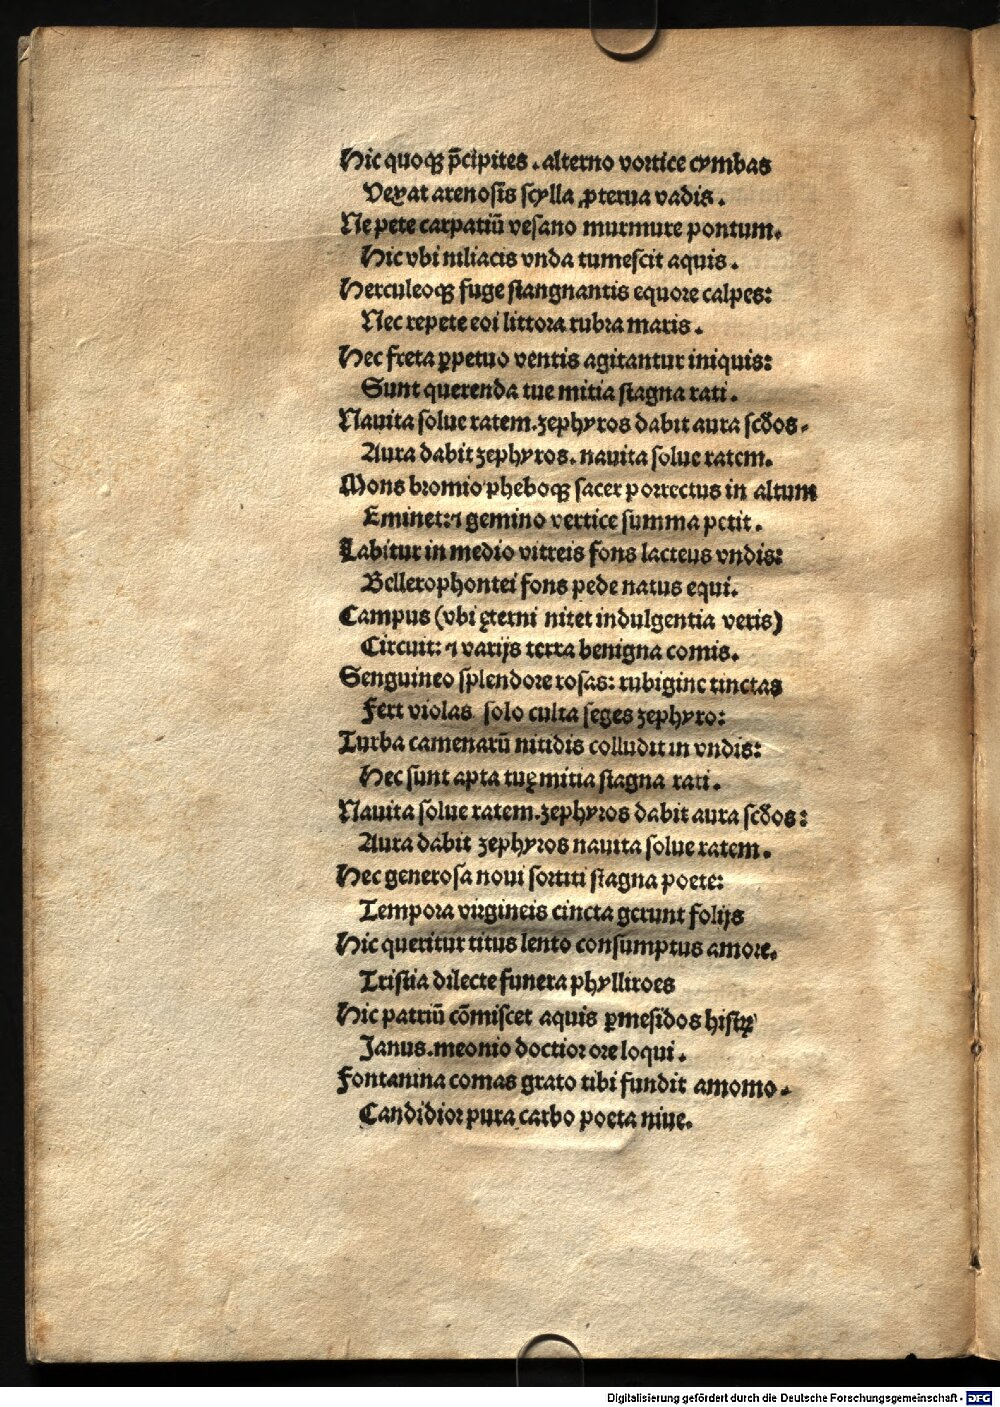 Hic quoqꝫ p̄cipites . alterno vortice cymbas
Vexat arenosis scylla ꝓterua vadis .
Ne pete carpatiū vesano murmure pontum.
Hic vbi niliacis vnda tumescit aquis .
Herculeoqꝫ fuge stangnantis equore calpes:
Nec repete eoi littora rubra maris .
Hec freta ꝑpetuo ventis agitantur iniquis:
Sunt querenda tue mitia stagna rati .
Nauita solue ratem. zephyros dabit aura scđos.
Aura dabit zephyros. nauita solue ratem.
Mons bromio pheboqꝫ sacer porrectus in altum
Eminet: ⁊ gemino vertice summa petit .
Labitur in medio vitreis fons lacteus vndis:
Bellerophontei fons pede natus equi.
Campus (vbi ęterni nitet indulgentia veris)
Circuit: ⁊ varijs terra benigna comis.
Senguineo splendore rosas: rubigine tinctas
Fert violas solo culta seges zephyro:
Turba camenarū nitidis colludit in vndis:
Hec sunt apta tuę mitia stagna rati .
Nauita solue ratem. zephyros dabit aura scđos:
Aura dabit zephyros nauita solue ratem .
Hec generosa noui sortiti stagna poete:
Tempora virgineis cincta gerunt folijs
Hic queritur titus lento consumptus amore.
Tristia dilecte funera phylliroes
Hic patriū cōmiscet aquis ꝑmesidos histrꝝ
Janus. meonio doctior ore loqui .
Fontanina comas grato tibi fundit amomo.
Candidior pura carbo poeta niue.
Digitalisierung gefördert durch die Deutsche Forschungsgemeinschaft - DFG